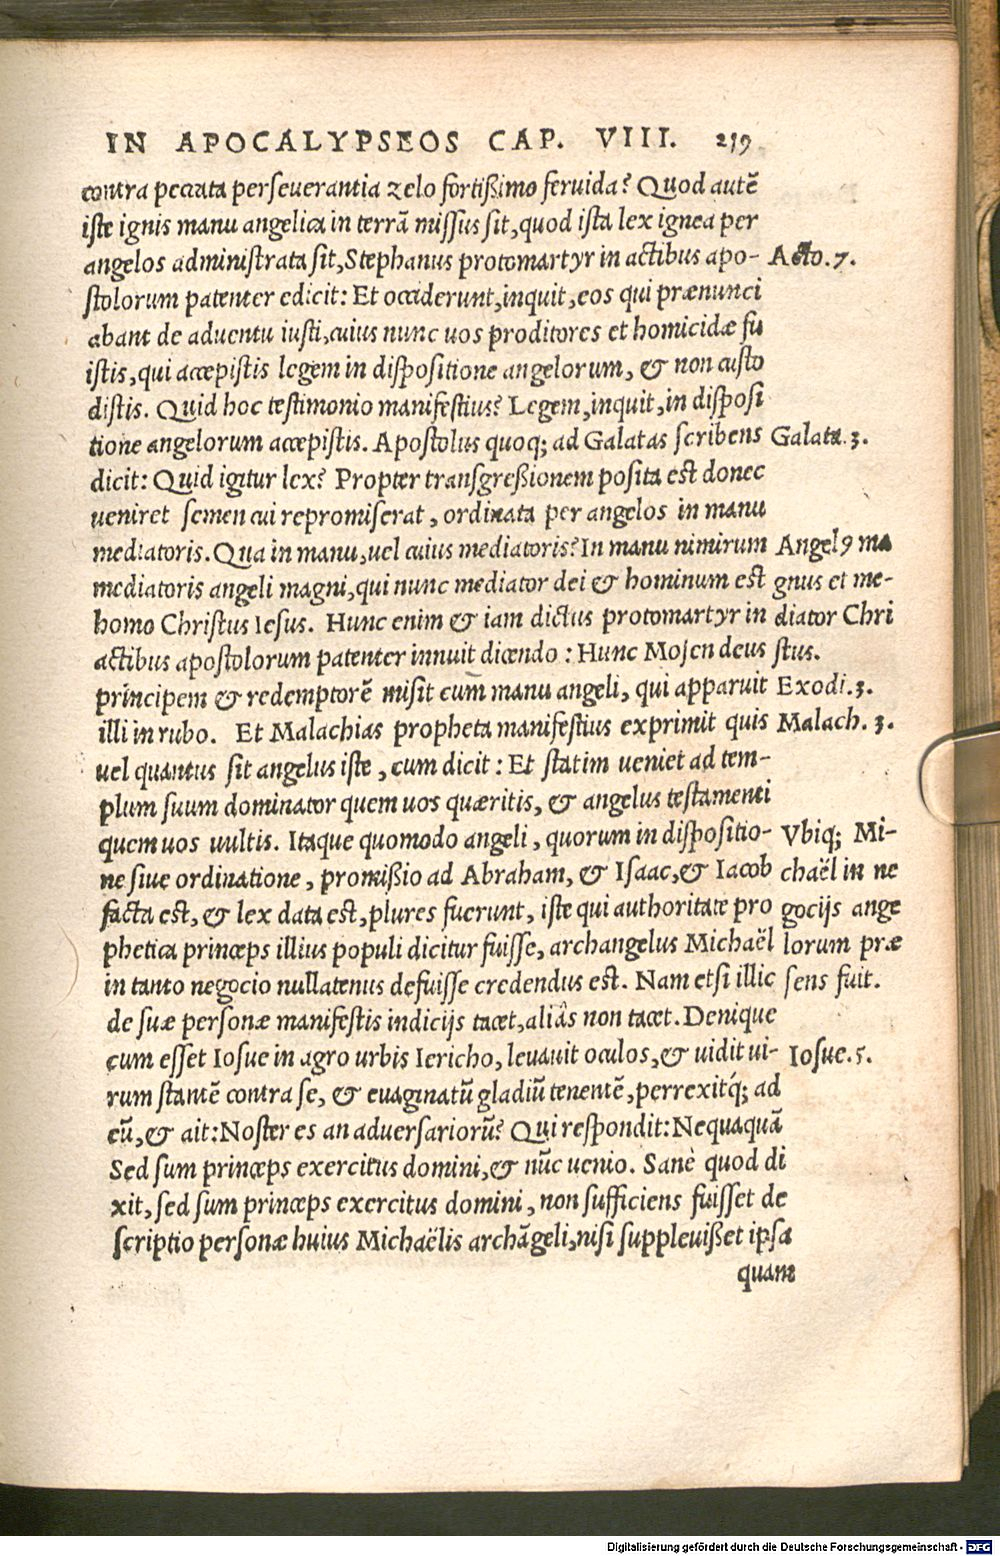 IN APOCALYPSEOS CAP. VIII. 219
contra peccata perseverantia zelo fortißimo feruida? Quod autē
iste ignis manu angelica in terrā missus sit, quod ista lex ignea per
angelos administrata sit, Stephanus protomartyr in actibus apo-
Acto. 7.
stolorum patenter edicit: Et occiderunt, inquit, eos qui prænunci
abant de aduentu iusti, cuius nunc uos proditores et homicidæ fu
istis, qui accepistis legem in dispositione angelorum, & non custo
distis. Quid hoc testimonio manifestius? Legem, inquit, in disposi
tione angelorum accepistis. Apostolus quoq; ad Galatas scribens
Galata. 3.
dicit: Quid igitur lex? Propter transgreßionem posita est donec
ueniret semen cui repromiserat, ordinata per angelos in manu
mediatoris. Qua in manu, uel cuius mediatoris? In manu nimirum
mediatoris angeli magni, qui nunc mediator dei & hominum est
homo Christus Iesus. Hunc enim & iam dictus protomartyr in
actibus apostolorum patenter innuit dicendo: Hunc Mosen deus
Angel9 ma
gnus et me-
diator Chri
stus.
principem & redemptorē misit cum manu angeli, qui apparuit
Exodi. 3.
illi in rubo. Et Malachias propheta manifestius exprimit quis
Malach. 3.
uel quantus sit angelus iste, cum dicit: Et statim ueniet ad tem-
plum suum dominator quem uos quæritis, & angelus testamenti
quem uos uultis. Itaque quomodo angeli, quorum in dispositio-
ne siue ordinatione, promißio ad Abraham, & Isaac, & Iacob
facta est, & lex data est, plures fuerunt, iste qui authoritate pro
phetica princeps illius populi dicitur fuisse, archangelus Michaël
in tanto negocio nullatenus defuisse credendus est. Nam etsi illic
Vbiq; Mi-
chaël in ne
gocijs ange
lorum præ
sens fuit.
de suæ personæ manifestis indicijs tacet, aliâs non tacet. Denique
cum esset Iosue in agro urbis Iericho, leuauit oculos, & uidit ui-
Iosue. 5.
rum stantē contra se, & euaginatū gladiū tenentē, perrexitq́; ad
eū, & ait: Noster es an aduersariorū? Qui respondit: Nequaquā
Sed sum princeps exercitus domini, & nūc uenio. Sanè quod di
xit, sed sum princeps exercitus domini, non sufficiens fuisset de
scriptio personæ huius Michaëlis archāgeli, nisi suppleuißet ipsa
quam
Digitalisierung gefördert durch die Deutsche Forschungsgemeinschaft - DFG